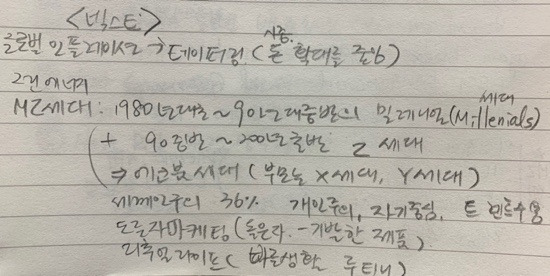 <넥스트>
글로벌 인플레이션 → 테이퍼링 (시중 돈 확대를 줄임)
그린에너지
MZ세대 : 1980년대초 ~ 90년대중반의 밀레니얼(Millenials) 세대
+ 90중반 ~ 200년초반 Z 세대
⇒ 에코붐세대 (부모는 X세대, Y세대)
세계인구의 36% 개인주의, 자기중심, 트렌트수용
도른자마케팅 (돌은자. - 기발한 제품)
리추얼라이프 ( 바른생활 루티니)